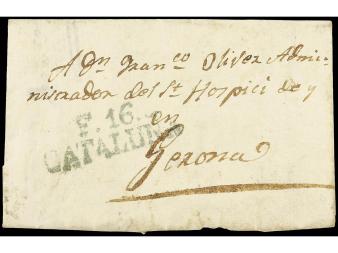 A Dn Franco Oliver Admi-
nistrador del St Hospici de y
en
F. 16.
CATALUÑA
Gerona